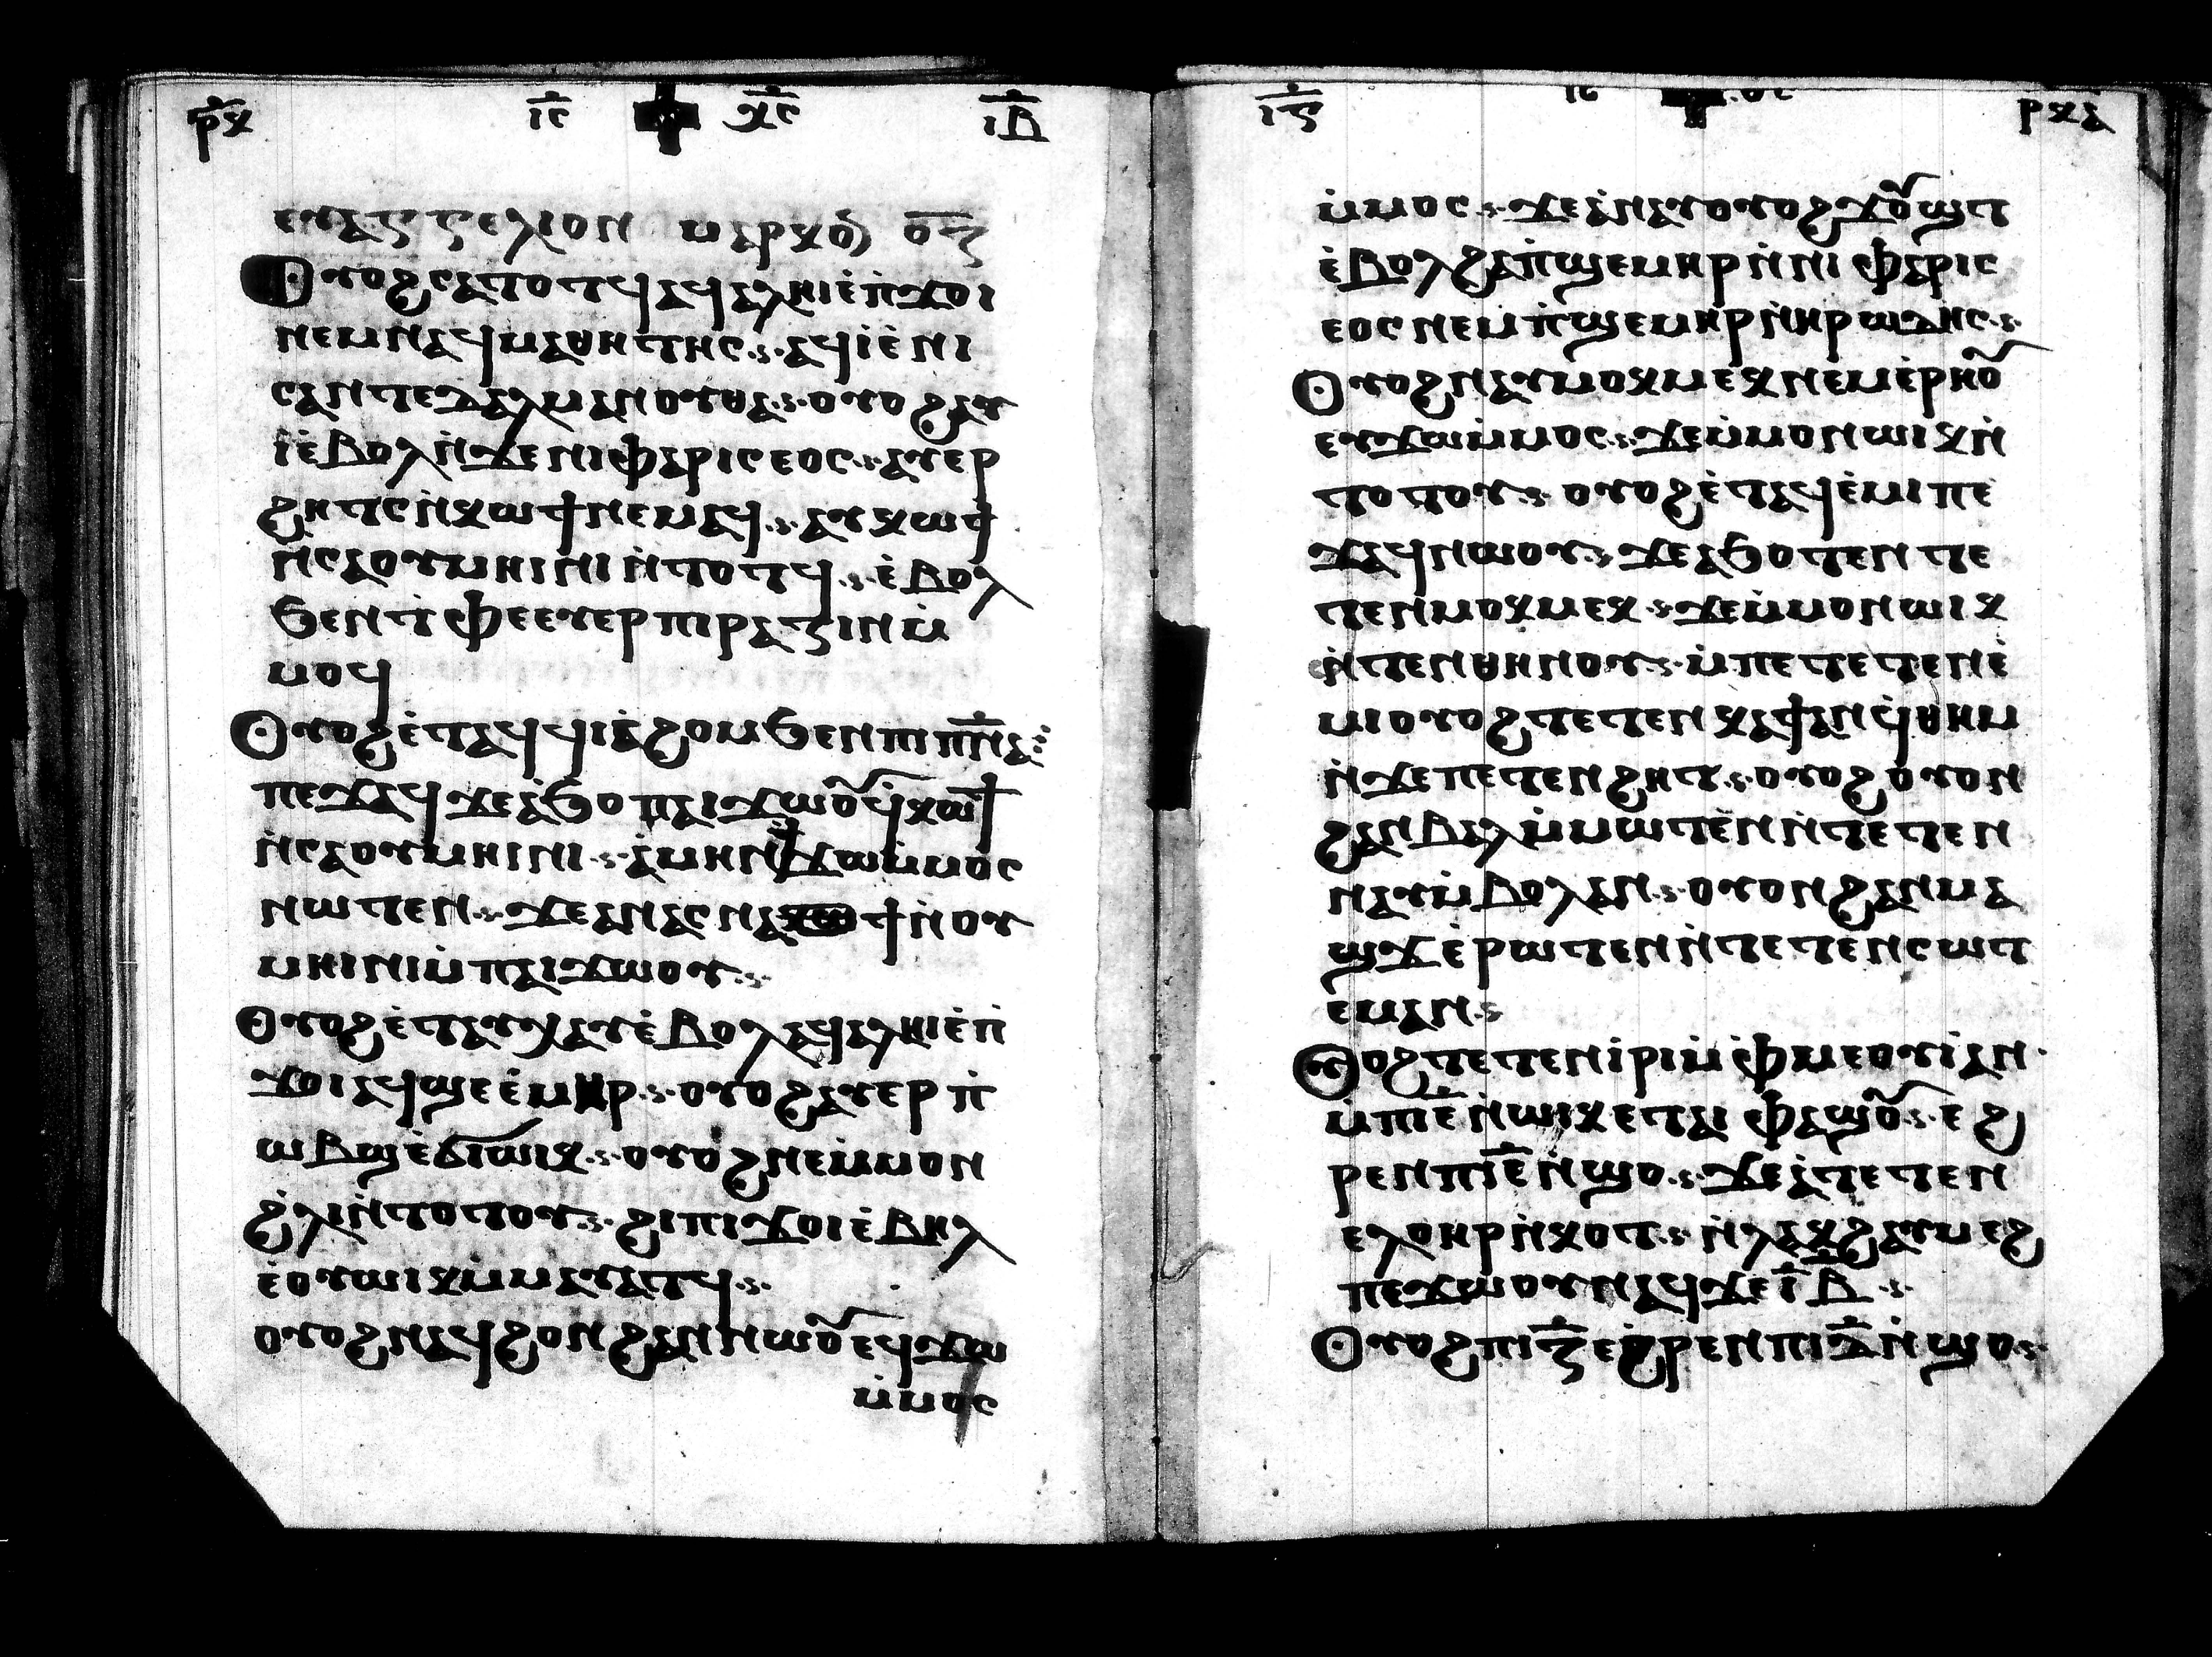 ⲣ̅ⲕ ⲓ̅ⲥ ⲭ̅ⲥ ⲓ̅ⲃ
ⲉⲩⲁⲅⲅⲉⲗⲓⲟⲛ ⲙⲁⲣⲕⲟⲛ
ⲟⲩⲟϩⲥⲁⲧⲟⲧϥⲁϥⲁⲗⲏⲓⲉ̀ⲡ̀ϫⲟⲓ
ⲛⲉⲙⲛⲁϥⲙⲁⲑⲏⲧⲏⲥ·ⲁϥⲓ̀ⲉ̀ⲛⲓ
ⲥⲁⲛⲧⲉⲇⲁⲗⲙⲁⲛⲟⲩⲑⲁ·ⲟⲩⲟϩⲁⲩ
ⲓ̀ⲉ̀ⲃⲟⲗⲛ̀ϫⲉⲛⲓⲫⲁⲣⲓⲥⲉⲟⲥ·ⲁⲩⲉⲣ
ϩⲏⲧⲥⲛ̀ⲕⲱϯⲛⲉⲙⲁϥ·ⲁⲩⲕⲱϯ
ⲛ̀ⲥⲁⲟⲩⲙⲏⲓⲛⲓⲛ̀ⲧⲟⲧϥ·ⲉ̀ⲃⲟⲗ
ϧⲉⲛⲧ̀ⲫⲉⲉⲩⲉⲣⲡⲓⲣⲁⲍⲓⲛⲙ̀
ⲙⲟϥ
ⲟⲩⲟϩⲉ̀ⲧⲁϥϥⲓⲁ̀ϩⲟⲙϧⲉⲛⲡⲓⲡ̅ⲛⲁ
ⲡⲉϫⲁϥϫⲉⲁ̀ϧⲟⲡⲁⲓϫⲱⲟⲩϥ̀ⲕⲱϯ
ⲛ̀ⲥⲁⲟⲩⲙⲏⲓⲛⲓ·ⲁ̀ⲙⲏⲛϯϫⲱⲙ̀ⲙⲟⲥ
ⲛⲱⲧⲉⲛ·ϫⲉⲁⲛⲁⲥⲛⲁϯⲛ̀ⲟⲩ
ⲙⲏⲓⲛⲓⲙ̀ⲡⲁⲓϫⲱⲟⲩ·
ⲟⲩⲟϩⲉ̀ⲧⲁⲩⲭⲁⲩⲉ̀ⲃⲟⲗⲁϥⲁⲗⲏⲓⲉ̀ⲡ̀
ϫⲟⲓⲁϥϣⲉⲉ̀ⲙⲏⲣ·ⲟⲩⲟϩⲁⲩⲉⲣⲡ̀
ⲱⲃϣⲉ̀ϭⲓⲱⲓⲕ·ⲟⲩⲟϩⲛⲉⲙ̀ⲙⲟⲛ
ϩ̀ⲗⲓⲛ̀ⲧⲟⲧⲟⲩ·ϩⲓⲡⲓϫⲟⲓⲉ̀ⲃⲏⲗ
ⲉ̀ⲟⲩⲱⲓⲕⲙ̀ⲙⲁⲩⲁⲧϥ·
ⲟⲩⲟϩⲛⲁϥϩⲟⲛϩⲁⲛⲛⲱⲟⲩⲉϥϫⲱ
ⲙ̀ⲙⲟⲥ
ⲓ̅ⲋ ⲓⲥ ⲣⲕⲁ
ⲙ̀ⲙⲟⲥ·ϫⲉⲁ̀ⲛⲁⲩⲟⲩⲟϩϫⲟⲩϣⲧ
ⲉ̀ⲃⲟⲗϩⲁⲡ̀ϣⲉⲙⲏⲣⲛ̀ⲛⲓⲫⲁⲣⲓⲥ
ⲉⲟⲥⲛⲉⲙⲡ̀ϣⲉⲙⲏⲣⲛ̀ⲏⲣⲱⲇⲏⲥ·
ⲟⲩⲟϩⲛⲁⲩⲙⲟⲕⲙⲉⲕⲛⲉⲙⲉ̀ⲣⲏⲟⲩ
ⲉⲩϫⲱⲙ̀ⲙⲟⲥ·ϫⲉⲙ̀ⲙⲟⲛⲱⲓⲕⲛ̀
ⲧⲟⲧⲟⲩ·ⲟⲩⲟϩⲉ̀ⲧⲁϥⲉ̀ⲙⲓⲡⲉ
ϫⲁϥⲛⲱⲟⲩ·ϫⲉⲁϧⲟⲧⲉⲛⲧⲉ
ⲧⲉⲛⲙⲟⲕⲙⲉⲕ·ϫⲉⲙ̀ⲙⲟⲛⲱⲓⲕ
ⲛ̀ⲧⲉⲛⲑⲏⲛⲟⲩ·ⲙ̀ⲡⲉⲧⲉⲧⲉⲛⲉ̀
ⲙⲓⲟⲩⲟϩⲧⲉⲧⲉⲛⲕⲁϯⲁⲛϥ̀ⲑⲏⲙ
ⲛ̀ϫⲉⲡⲉⲧⲉⲛϩⲏⲧ·ⲟⲩⲟϩⲟⲩⲟⲛ
ϩⲁⲛⲃⲁⲗⲙ̀ⲙⲱⲧⲉⲛⲛ̀ⲧⲉⲧⲉⲛ
ⲛⲁⲩⲙ̀ⲃⲟⲗⲁⲛ·ⲟⲩⲟⲛϩⲁⲛⲙⲁ
ϣϫⲉ̀ⲣⲱⲧⲉⲛⲛ̀ⲧⲉⲧⲉⲛⲥⲱⲧ
ⲉⲙⲁⲛ·
ⲟⲩⲟϩⲧⲉⲧⲉⲛⲓ̀ⲣⲓⲙ̀ⲫ̀ⲙⲉⲟⲩⲓ̀ⲁⲛ·
ⲙ̀ⲡⲓⲉ̅ⲛ̀ⲱⲓⲕⲉⲧⲁⲓⲫⲁϣⲟⲩ·ⲉϩ
ⲣⲉⲛⲡⲓⲉ̅ⲛ̀ϣⲟ·ϫⲉⲁ̀ⲧⲉⲧⲉⲛ
ⲉⲗⲟⲩⲏⲣⲛ̀ⲕⲟⲧ·ⲛ̀ⲗⲁⲕϩⲁⲩⲙⲉϩ
ⲡⲉϫⲱⲟⲩⲛⲁϥϫⲉⲓ̅ⲃ̅·
ⲟⲩⲟϩⲡⲓⲍ̅ⲉϩⲣⲉⲛⲡⲓⲇ̅ⲛ̀ϣⲟ·